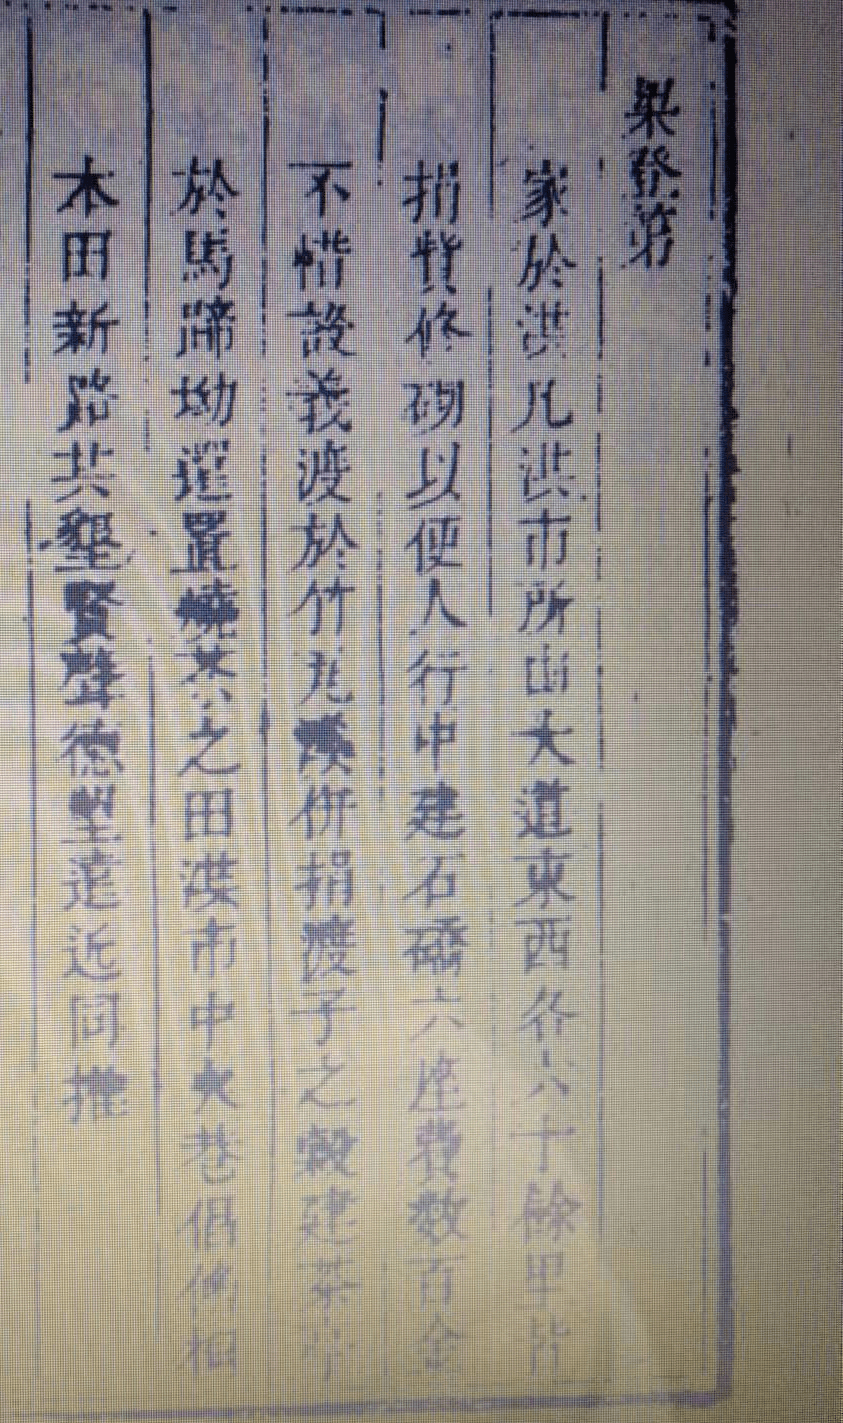 梁登第
家於洪凡洪市所由大道東西各六十餘里皆
捐貲修砌以便人行中建石磴六座費數百金
不惜設義渡於竹瓦溪併捐渡子之穀建茶亭
於馬蹄坳還置燒茶之田洪市中火巷倡備相
木田新路共墾賢聲德望遠近同推